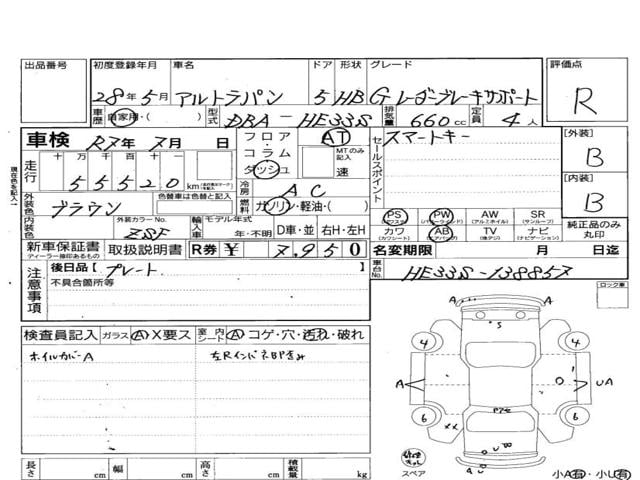 出品番号 初度登録年月 車名 ドア 形状 グレード 評価点
28年5月 アルトラパン 5 HB G レーダーブレーキサポート R
車歴 自家用・( ) 型式 DBA-HE33S 排気量 660cc 定員 4人
車検 R7年 7月 日 フロア・コラム・ダッシュ AT MTのみ記入 速 セールスポイント スマートキー [外装] B
現在色を記入
走行 十 万 千 百 十 一 55520 km
冷房 AC [内装] B
外装色 ブラウン 色替車は色替と記入 燃料 ガソリン・軽油・( )
PS (パワステ) PW (パワーウィンドウ) AW (アルミホイル) SR (サンルーフ) 純正品のみ丸印
内装色 外装カラーNo. ZSF 輸入車 モデル年式 年・不明 D車・並 右H・左H
カワ (カワシート) AB (エアバッグ) TV (地デジ) ナビ (ナビゲーション)
新車保証書 ディーラー捺印あるもの 取扱説明書 R券 ¥ 7,950 名変期限 月 日迄
注意事項 後日品 [プレート] 車台No. HE33S-138857
不具合箇所等 ロック車
検査員記入 ガラス A X要ス 室内シート A コゲ・穴・汚れ・破れ
ホイルカバーA
A A
S
4 4
A U A
6 6
XX
スペア
A U
長さ cm 幅 cm 高さ cm 積載量 kg 小A有・小U有